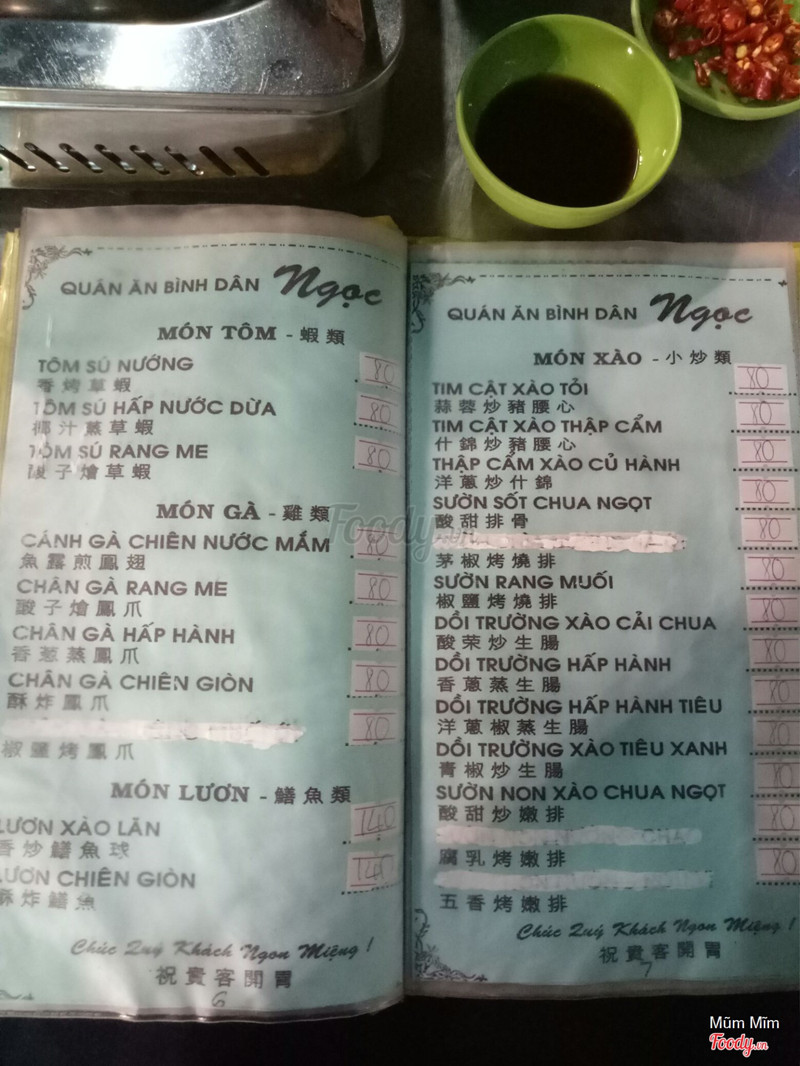 QUÁN ĂN BÌNH DÂN Ngọc
MÓN TÔM - 蝦類
TÔM SÚ NƯỚNG 80
香烤草蝦
TÔM SÚ HẤP NƯỚC DỪA 80
椰汁蒸草蝦
TÔM SÚ RANG ME 80
酸子燴草蝦
MÓN GÀ - 雞類
CÁNH GÀ CHIÊN NƯỚC MẮM 80
魚露煎鳳翅
CHÂN GÀ RANG ME 80
酸子燴鳳爪
CHÂN GÀ HẤP HÀNH 80
香葱蒸鳳爪
CHÂN GÀ CHIÊN GIÒN 80
酥炸鳳爪
80
椒鹽烤鳳爪
MÓN LƯƠN - 鱔魚類
LƯƠN XÀO LĂN 140
香炒鱔魚球
LƯƠN CHIÊN GIÒN 140
酥炸鱔魚
Chúc Quý Khách Ngon Miệng !
祝貴客開胃
6
QUÁN ĂN BÌNH DÂN Ngọc
MÓN XÀO - 小炒類
TIM CẬT XÀO TỎI 80
蒜蓉炒豬腰心
TIM CẬT XÀO THẬP CẨM 80
什錦炒豬腰心
THẬP CẨM XÀO CỦ HÀNH 80
洋蔥炒什錦
SƯỜN SỐT CHUA NGỌT 80
酸甜排骨
80
茅椒烤燒排
SƯỜN RANG MUỐI 80
椒鹽烤燒排
DỒI TRƯỜNG XÀO CẢI CHUA 80
酸菜炒生腸
DỒI TRƯỜNG HẤP HÀNH 80
香蔥蒸生腸
DỒI TRƯỜNG HẤP HÀNH TIÊU 80
洋蔥椒蒸生腸
DỒI TRƯỜNG XÀO TIÊU XANH 80
青椒炒生腸
SƯỜN NON XÀO CHUA NGỌT 80
酸甜炒嫩排
80
腐乳烤嫩排
80
五香烤嫩排
Chúc Quý Khách Ngon Miệng !
祝貴客開胃
7
Foody.vn
Mũm Mĩm
Foody.vn